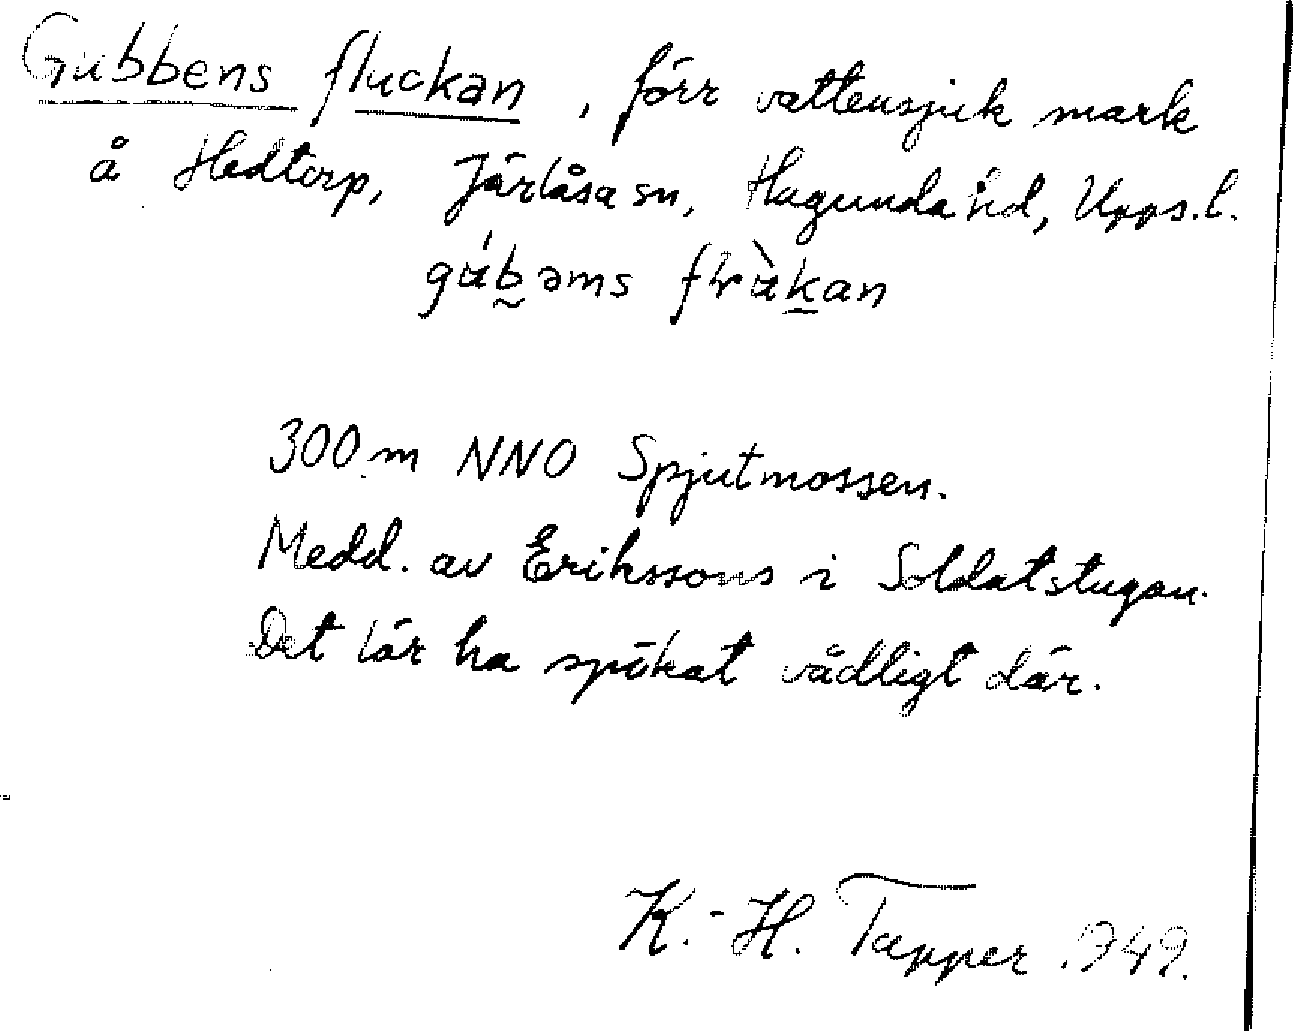 Gubbens fluckan, förr vattensjuk mark
å Hedtorp, Järlåsa sn, Hagunda hd, Upps.l.
gúb̰əms flrùḵan
300 m NNO Spjutmossen.
Medd. av Erikssons i Soldatstugan.
Det lär ha spökat vådligt där.
K.-H. Tapper 1949.